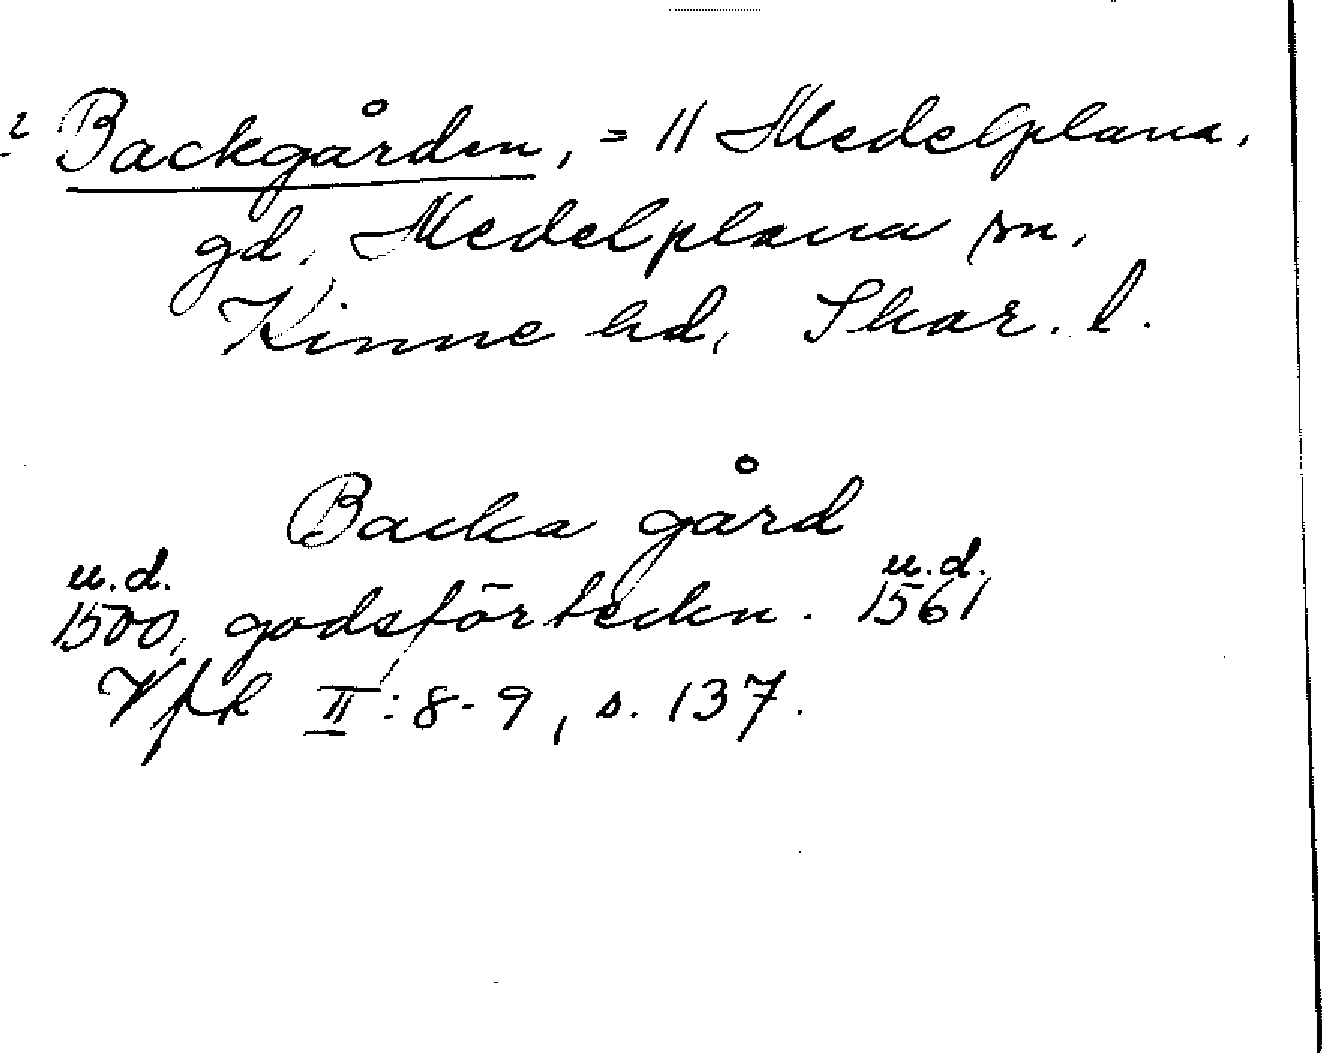 ? Backgården, = 11 Medelplana,
gd, Medelplana sn,
Kinne hd, Skar. l.
Backa gård
u.d. u.d.
1500, godsförteckn. 1561
Vfk II:8-9, s. 137.